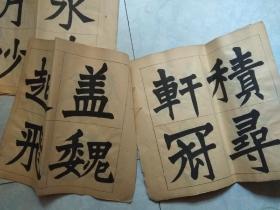 永
妙
盖 越
魏 飛
積 軒
尋 冠